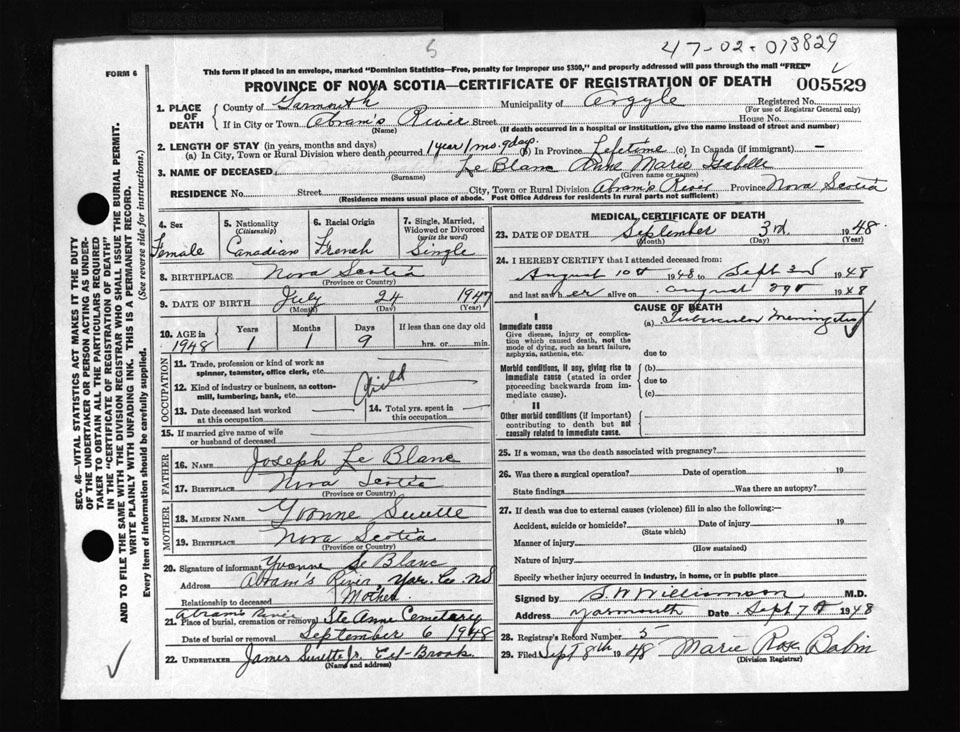 5
47-02-013829
FORM 6
This form if placed in an envelope, marked "Dominion Statistics—Free, penalty for improper use $300," and properly addressed will pass through the mail "FREE"
PROVINCE OF NOVA SCOTIA—CERTIFICATE OF REGISTRATION OF DEATH
005529
1. PLACE OF DEATH
County of Yarmouth Municipality of Argyle Registered No.
(For use of Registrar General only)
If in City or Town Abram's River Street House No.
(Name) (If death occurred in a hospital or institution, give the name instead of street and number)
2. LENGTH OF STAY (in years, months and days)
(a) In City, Town or Rural Division where death occurred 1 year 1 mo. 9 days. (b) In Province Lifetime (c) In Canada (if immigrant) —
3. NAME OF DECEASED Le Blanc Anne Marie Isabelle
(Surname) (Given name or names)
RESIDENCE No. Street City, Town or Rural Division Abram's River Province Nova Scotia
(Residence means usual place of abode. Post Office Address for residents in rural parts not sufficient)
4. Sex
Female
5. Nationality
(Citizenship)
Canadian
6. Racial Origin
French
7. Single, Married, Widowed or Divorced
(write the word)
Single
8. BIRTHPLACE Nova Scotia
(Province or Country)
9. DATE OF BIRTH July 24 1947
(Month) (Day) (Year)
10. AGE in Years Months Days If less than one day old
1948 1 1 9 hrs. or min.
OCCUPATION
11. Trade, profession or kind of work as spinner, teamster, office clerk, etc.
12. Kind of industry or business, as cotton-mill, lumbering, bank, etc.
Child
13. Date deceased last worked at this occupation
14. Total yrs. spent in this occupation
15. If married give name of wife or husband of deceased
FATHER
16. NAME Joseph Le Blanc
17. BIRTHPLACE Nova Scotia
(Province or Country)
MOTHER
18. MAIDEN NAME Yvonne Surette
19. BIRTHPLACE Nova Scotia
(Province or Country)
20. Signature of informant Yvonne Le Blanc
Address Abram's River, Yar. Co. NS
Relationship to deceased Mother
Abram's River
21. Place of burial, cremation or removal Ste Anne Cemetary
Date of burial or removal September 6 1948
22. UNDERTAKER James Surette Jr. Eel-Brook
(Name and address)
MEDICAL CERTIFICATE OF DEATH
23. DATE OF DEATH September 3rd 1948
(Month) (Day) (Year)
24. I HEREBY CERTIFY that I attended deceased from:
August 10th 1948 to Sept 3rd 1948
and last saw her alive on August 1948
CAUSE OF DEATH
I
Immediate cause
Give disease, injury or complication which caused death, not the mode of dying, such as heart failure, asphyxia, asthenia, etc.
(a) Tubercular Meningitis
due to
Morbid conditions, if any, giving rise to immediate cause (stated in order proceeding backwards from immediate cause).
(b)
due to
(c)
II
Other morbid conditions (if important) contributing to death but not causally related to immediate cause.
25. If a woman, was the death associated with pregnancy?
26. Was there a surgical operation? Date of operation 19
State findings Was there an autopsy?
27. If death was due to external causes (violence) fill in also the following:—
Accident, suicide or homicide? Date of injury 19
(State which)
Manner of injury
(How sustained)
Nature of injury
Specify whether injury occurred in industry, in home, or in public place
Signed by S.W. Williamson M.D.
Address Yarmouth Date Sept 7th 1948
28. Registrar's Record Number 5
29. Filed Sept 8th 1948 Marie Rose Babin
(Division Registrar)
SEC. 46—VITAL STATISTICS ACT MAKES IT THE DUTY
OF THE UNDERTAKER OR PERSON ACTING AS UNDER-
TAKER TO OBTAIN ALL THE PARTICULARS REQUIRED
IN THE "CERTIFICATE OF REGISTRATION OF DEATH"
AND TO FILE THE SAME WITH THE DIVISION REGISTRAR WHO SHALL ISSUE THE BURIAL PERMIT.
WRITE PLAINLY WITH UNFADING INK. THIS IS A PERMANENT RECORD.
Every item of information should be carefully supplied. (See reverse side for instructions.)